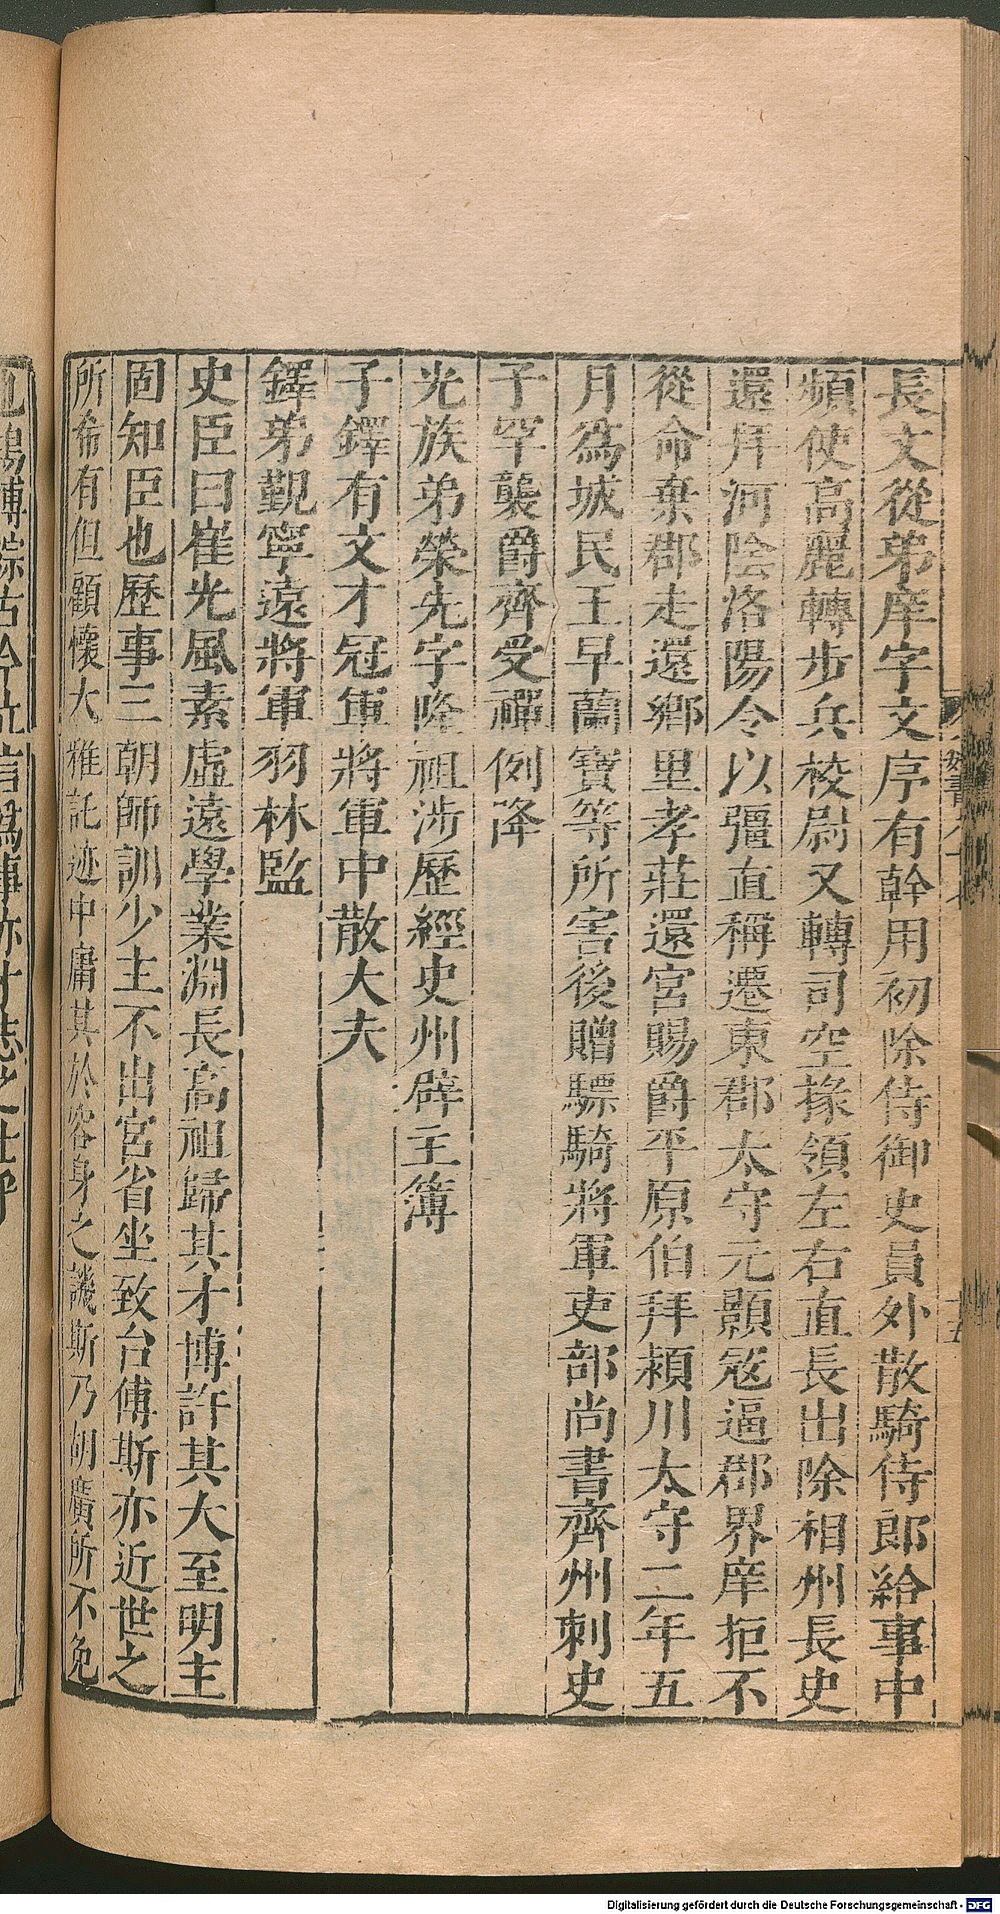 長文從弟庠字文序有幹用初除侍御史員外散騎侍郎給事中
頻使高麗轉步兵校尉又轉司空掾領左右直長出除相州長史
還拜河陰洛陽令以彊直稱遷東郡太守元顥宼逼郡界庠拒不
從命棄郡走還鄉里孝莊還宮賜爵平原伯拜潁川太守二年五
月爲城民王早蘭寶等所害後贈驃騎將軍吏部尚書齊州刺史
子罕襲爵齊受禪例降
光族弟榮先字隆祖涉歷經史州辟主簿
子鐸有文才冠軍將軍中散大夫
鐸弟覲寧遠將軍羽林監
史臣曰崔光風素虛遠學業淵長高祖歸其才博許其大至明主
固知臣也歷事三朝師訓少主不出宮省坐致台傅斯亦近世之
所希有但顧懷大雅託迹中庸其於容身之譏斯乃胡廣所不免
Digitalisierung gefördert durch die Deutsche Forschungsgemeinschaft - DFG